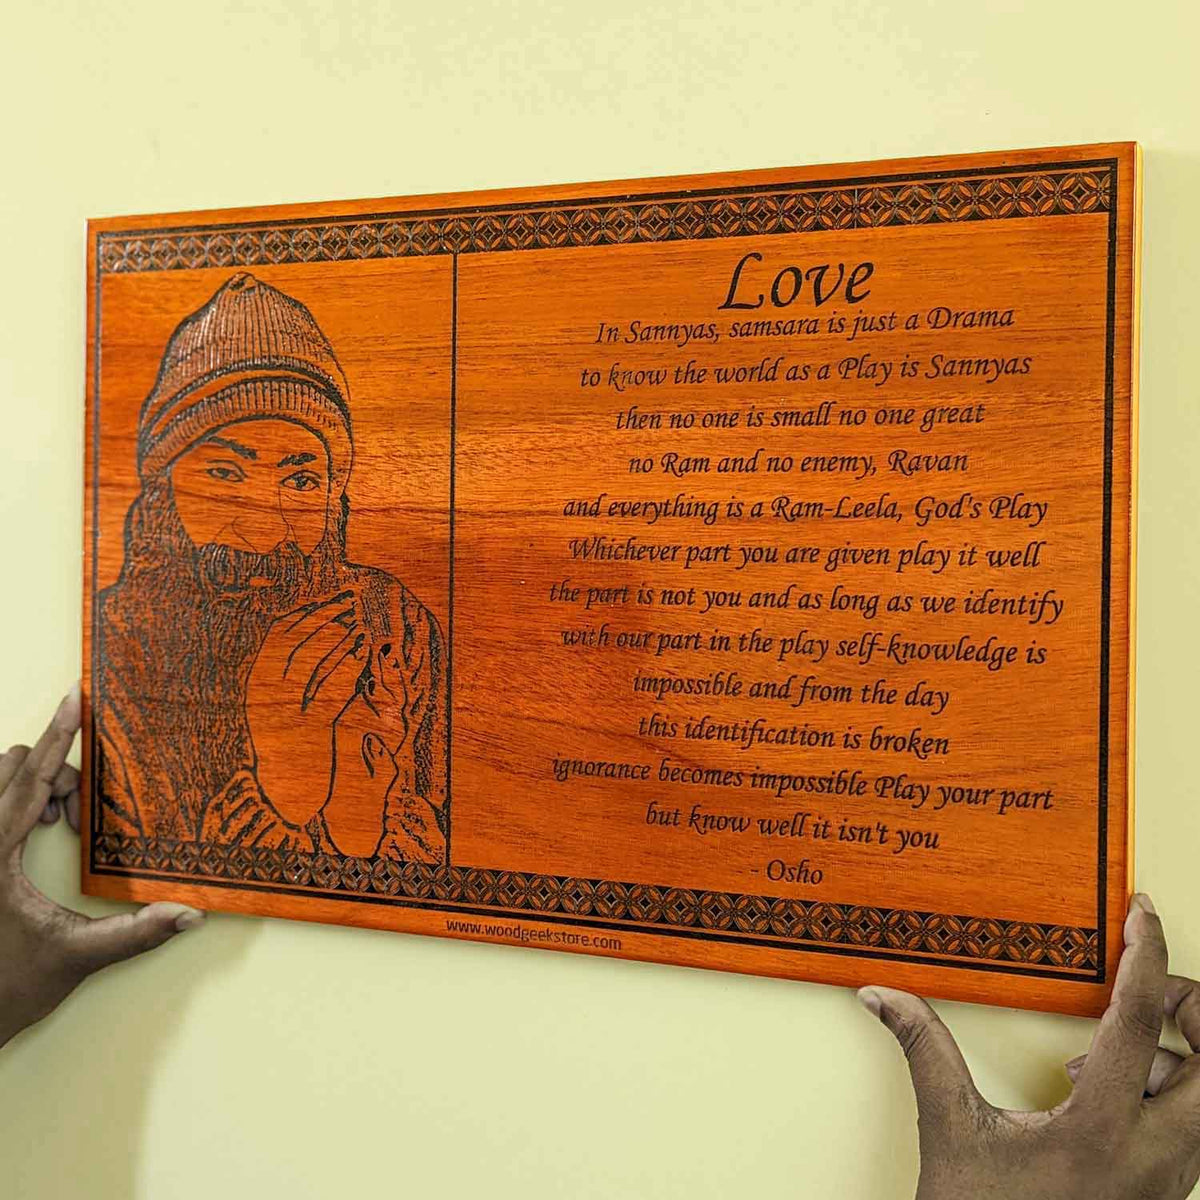 Love
In Sannyas, samsara is just a Drama
to know the world as a Play is Sannyas
then no one is small no one great
no Ram and no enemy, Ravan
and everything is a Ram-Leela, God's Play
Whichever part you are given play it well
the part is not you and as long as we identify
with our part in the play self-knowledge is
impossible and from the day
this identification is broken
ignorance becomes impossible Play your part
but know well it isn't you
- Osho
www.woodgeekstore.com